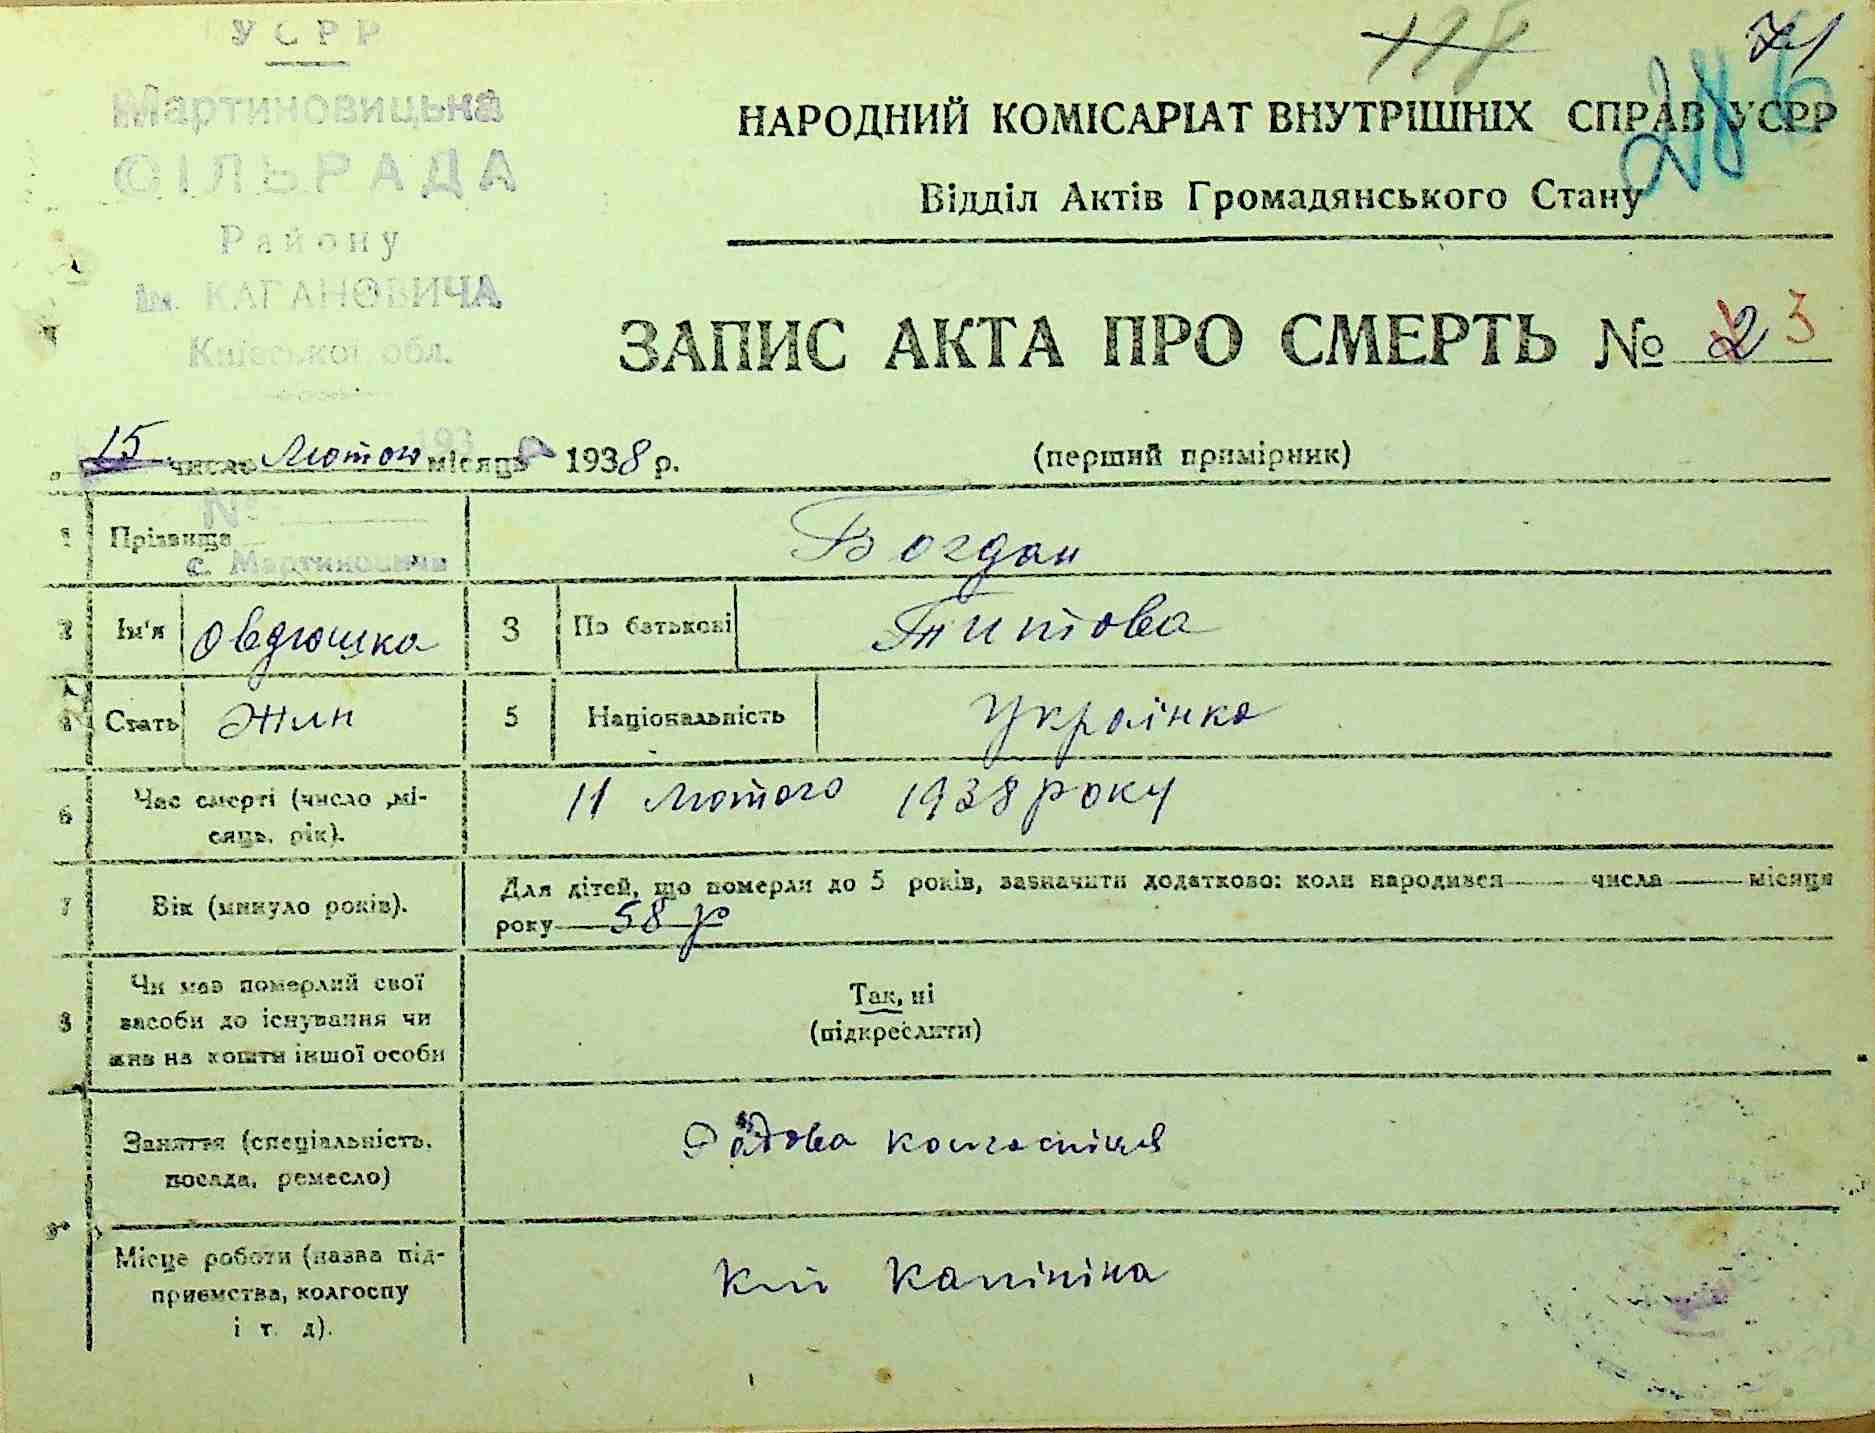 УСРР
Мартиновицька
СІЛЬРАДА
Району
ім. КАГАНОВИЧА
Київської обл.
71
НАРОДНИЙ КОМІСАРІАТ ВНУТРІШНІХ СПРАВ УСРР
Відділ Актів Громадянського Стану
ЗАПИС АКТА ПРО СМЕРТЬ № 23
15 число Лютого місяця 1938 р.
(перший примірник)
№
с. Мартиновичи
1 Прізвище Богдан
2 Ім'я Овдюшка 3 По батькові Титова
4 Стать Жін 5 Національність Українка
6 Час смерті (число, мі-
сяць, рік). 11 Лютого 1938 року
7 Вік (минуло років). Для дітей, що померли до 5 років, зазначити додатково: коли народився числа місяця
року 58 р
8 Чи мав померлий свої
засоби до існування чи
жив на кошти іншої особи
Так, ні
(підкреслити)
9 Заняття (спеціальність,
посада, ремесло) Рядова колгоспниця
Місце роботи (назва під-
приємства, колгоспу
і т. д). К-п Калініна